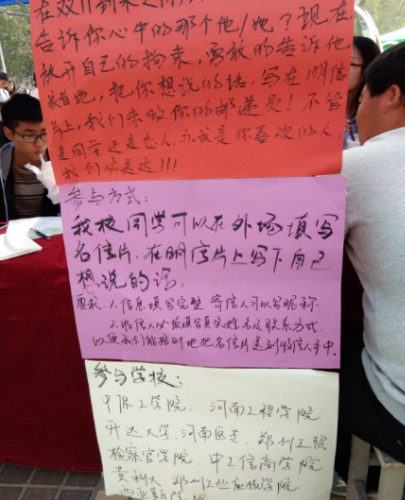 在双11到来之际
告诉你心中的那个他/她了现在
放开自己的拘束,勇敢的告诉他
或者她,把你想说的话.写在明信
片上,我们来做你的邮递员!不管
是同学还是恋人.亦或是你喜欢的人.
我们必送达!!!
参与方式:
我校同学可以在外场填写
名信片.在明信片上写下自己
想说的话.
要求:1.信息填写完整 寄信人可以写昵称.
2.收信人必须填写真实姓名及联系方式.
以便我们能按时地把名信片送到收信人手中.
参与学校:
中原工学院. 河南工程学院
升达大学.河南医专.郑州工贸
检察官学院. 中工信商学院
黄科大